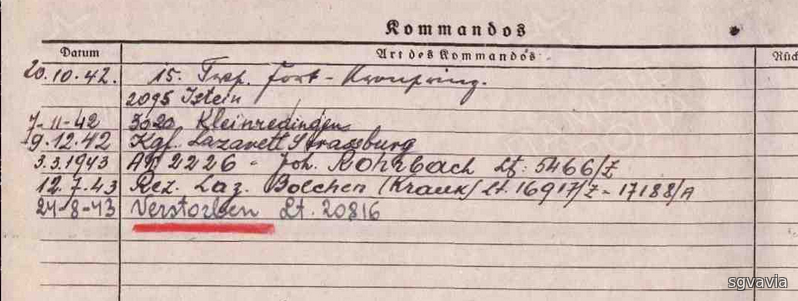 Kommandos
Datum Art des Kommandos Rück
20.10.42. 15. Trsp. Fort-Kronprinz.
2095 Istein
7-11-42 3020 Kleinredingen
9.12.42 Kgf. Lazarett Strassburg
3.3.1943 AK 2226 - Joh. Rohrbach Lt: 5466/Z
12.7.43 Rez. Laz. Bolchen (Krank) Lt. 16917/Z - 17188/A
24-8-43 Verstorben Lt. 20816
sgvavia